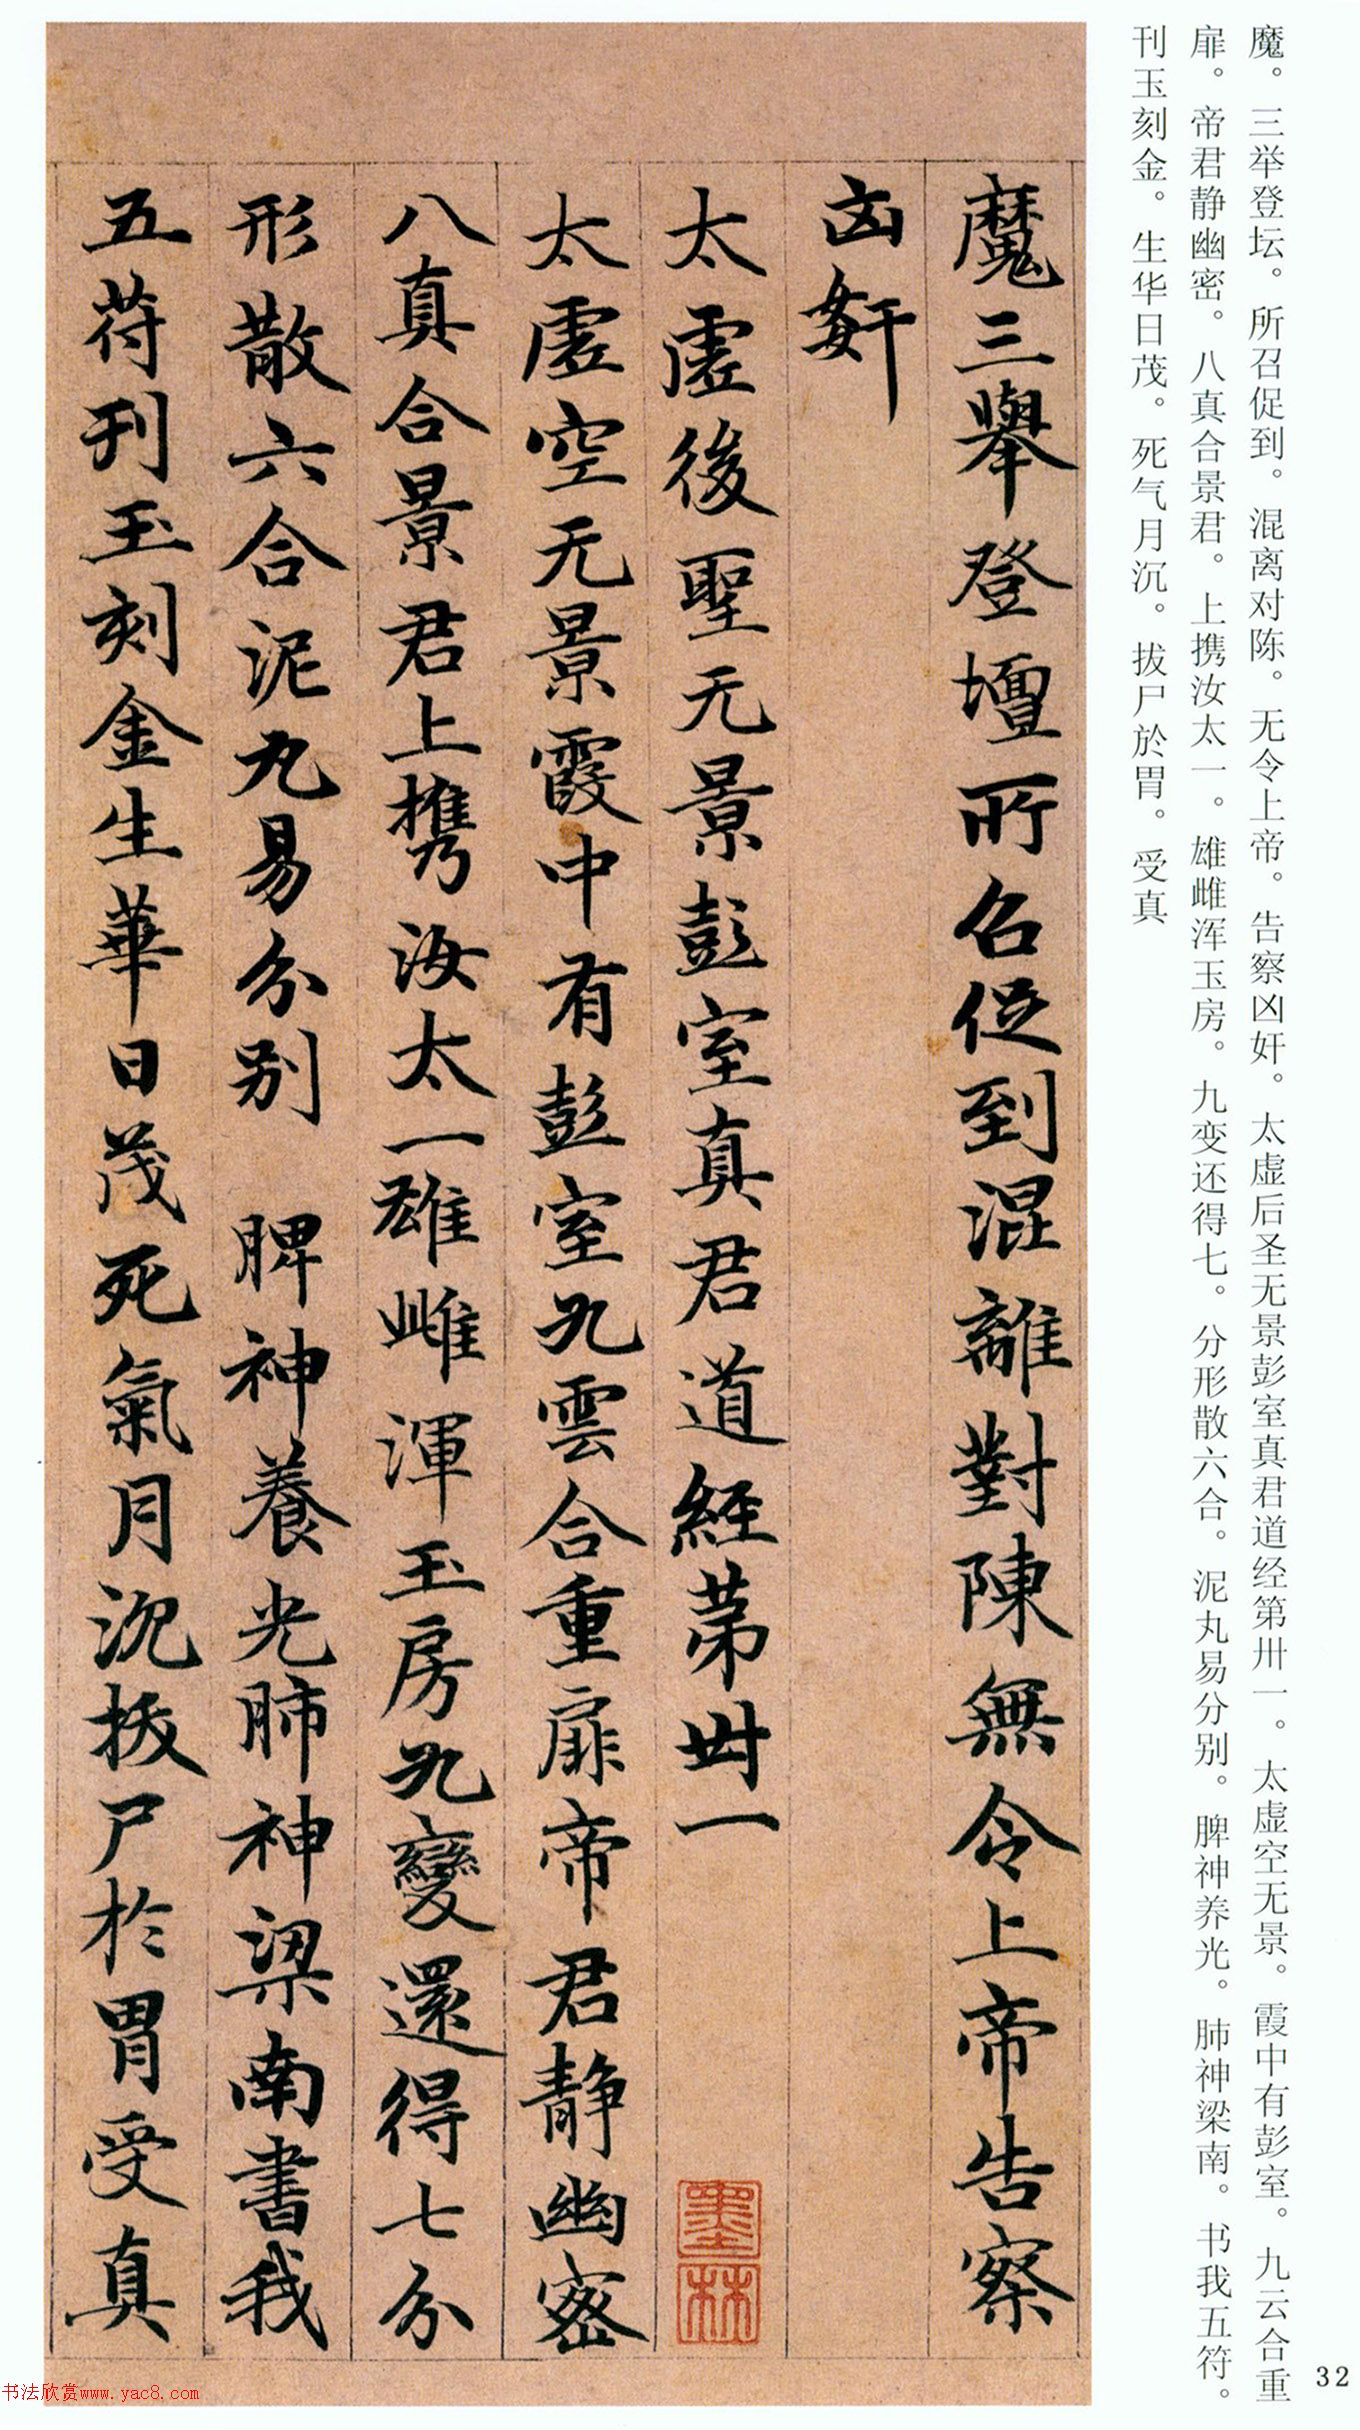 魔。三举登坛。所召促到。混离对陈。无令上帝。告察凶奸。太虚后圣无景彭室真君道经第卅一。太虚空无景。霞中有彭室。九云合重
扉。帝君静幽密。八真合景君。上携汝太一。雄雌浑玉房。九变还得七。分形散六合。泥丸易分别。脾神养光。肺神梁南。书我五符。
刊玉刻金。生华日茂。死气月沉。拔尸於胃。受真
魔三舉登壇所召促到混離對陳無令上帝告察
凶奸
太虛後聖无景彭室真君道經第卅一
太虛空无景霞中有彭室九雲合重扉帝君靜幽密
八真合景君上攜汝太一雄雌渾玉房九變還得七分
形散六合泥丸易分別 脾神養光肺神梁南書我
五符刊玉刻金生華日茂死氣月沉拔尸於胃受真
墨林
32
书法欣赏www.yac8.com